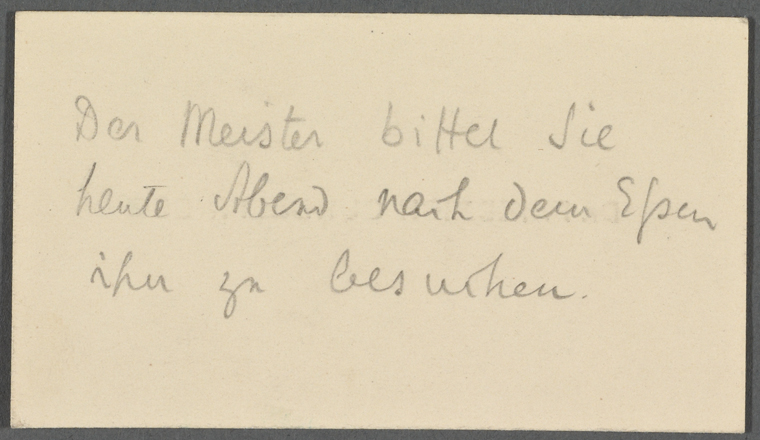 Der Meister bittet Sie
heute Abend nach dem Eßen
ihn zu besuchen.